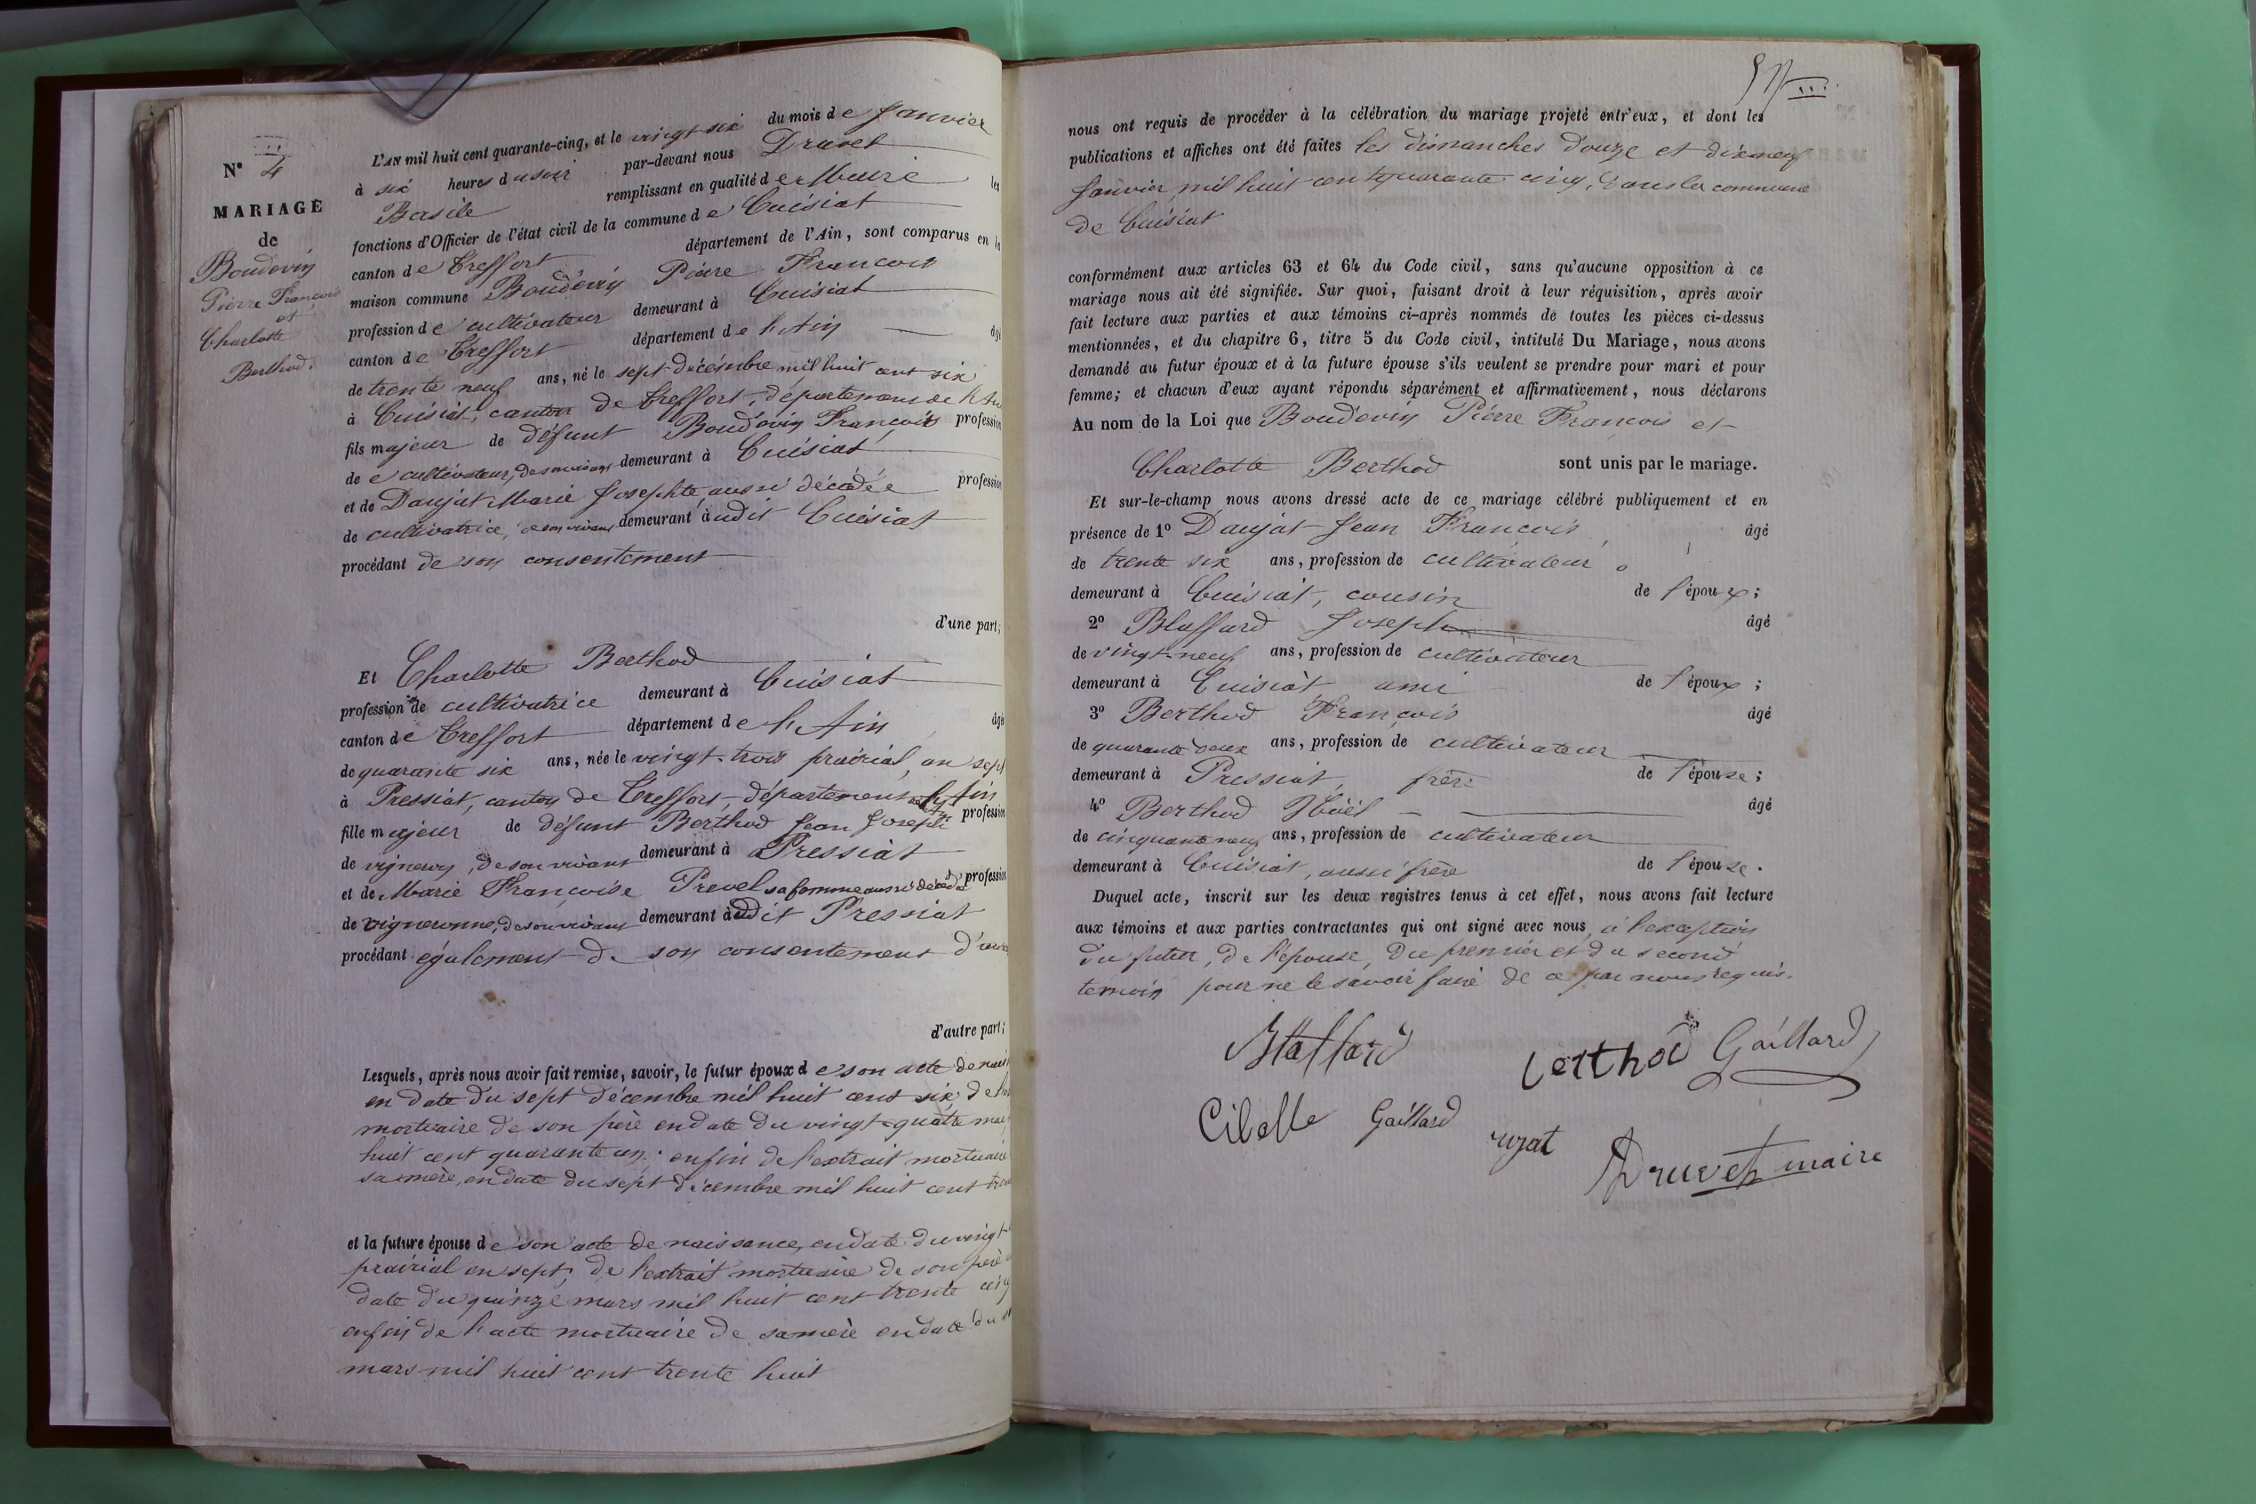 N° 4
MARIAGE
de
Boudevin
Pierre François
et
Charlotte
Berthod.
L'AN mil huit cent quarante-cinq, et le vingt six du mois de Janvier
à six heures du soir par-devant nous Druvet
Basile remplissant en qualité de Maire les
fonctions d'Officier de l'état civil de la commune de Cuisiat
canton de Treffort département de l'Ain, sont comparus en la
maison commune Boudevin Pierre François
profession de cultivateur demeurant à Cuisiat
canton de Treffort département de l'Ain âgé
de trente neuf ans, né le sept décembre mil huit cent six
à Cuisiat, canton de Treffort, département de l'Ain
fils majeur de défunt Boudevin François profession
de cultivateur, de son vivant demeurant à Cuisiat
et de Daujat Marie Josephte aussi décédée profession
de cultivatrice, de son vivant demeurant audit Cuisiat
procédant de son consentement
d'une part;
Et Charlotte Berthod
profession de cultivatrice demeurant à Cuisiat
canton de Treffort département de l'Ain âgé
de quarante six ans, née le vingt-trois prairial, an sept
à Pressiat, canton de Treffort, département de l'Ain
fille majeur de défunt Berthod Jean Joseph profession
de vigneron, de son vivant demeurant à Pressiat
et de Marie Françoise Prevel sa femme aussi décédé profession
de vigneronne, de son vivant demeurant audit Pressiat
procédant également de son consentement
d'autre part;
Lesquels, après nous avoir fait remise, savoir, le futur époux de son acte de
en date du sept décembre mil huit cent six, de
mortuaire de son père en date du vingt-quatre
huit cent quarante un; enfin de l'extrait mortuaire
sa mère, en date du sept décembre mil huit cent
et la future épouse de son acte de naissance, en date du vingt
prairial an sept, de l'extrait mortuaire de son père
date du quinze mars mil huit cent trente cinq
enfin de l'acte mortuaire de sa mère en date du
mars mil huit cent trente huit
nous ont requis de procéder à la célébration du mariage projeté entr'eux, et dont les
publications et affiches ont été faites les dimanches douze et dix neuf
Janvier mil huit cent quarante cinq, dans la commune
de Cuisiat
conformément aux articles 63 et 64 du Code civil, sans qu'aucune opposition à ce
mariage nous ait été signifiée. Sur quoi, faisant droit à leur réquisition, après avoir
fait lecture aux parties et aux témoins ci-après nommés de toutes les pièces ci-dessus
mentionnées, et du chapitre 6, titre 5 du Code civil, intitulé Du Mariage, nous avons
demandé au futur époux et à la future épouse s'ils veulent se prendre pour mari et pour
femme; et chacun d'eux ayant répondu séparément et affirmativement, nous déclarons
Au nom de la Loi que Boudevin Pierre François et
Charlotte Berthod sont unis par le mariage.
Et sur-le-champ nous avons dressé acte de ce mariage célébré publiquement et en
présence de 1° Daujat Jean François âgé
de trente six ans, profession de cultivateur
demeurant à Cuisiat, cousin de l'époux;
2° Blaffard Joseph âgé
de vingt-neuf ans, profession de cultivateur
demeurant à Cuisiat ami de l'époux;
3° Berthod François âgé
de quarante deux ans, profession de cultivateur
demeurant à Pressiat, frère de l'épouse;
4° Berthod Noël âgé
de cinquante neuf ans, profession de cultivateur
demeurant à Cuisiat, aussi frère de l'épouse.
Duquel acte, inscrit sur les deux registres tenus à cet effet, nous avons fait lecture
aux témoins et aux parties contractantes qui ont signé avec nous, à l'exception
du futur, de l'épouse, du premier et du second
temoin pour ne le savoir faire de ce par nous requis.
Blaffard Berthod Gaillard
Cibelle Gaillard
Druvet maire